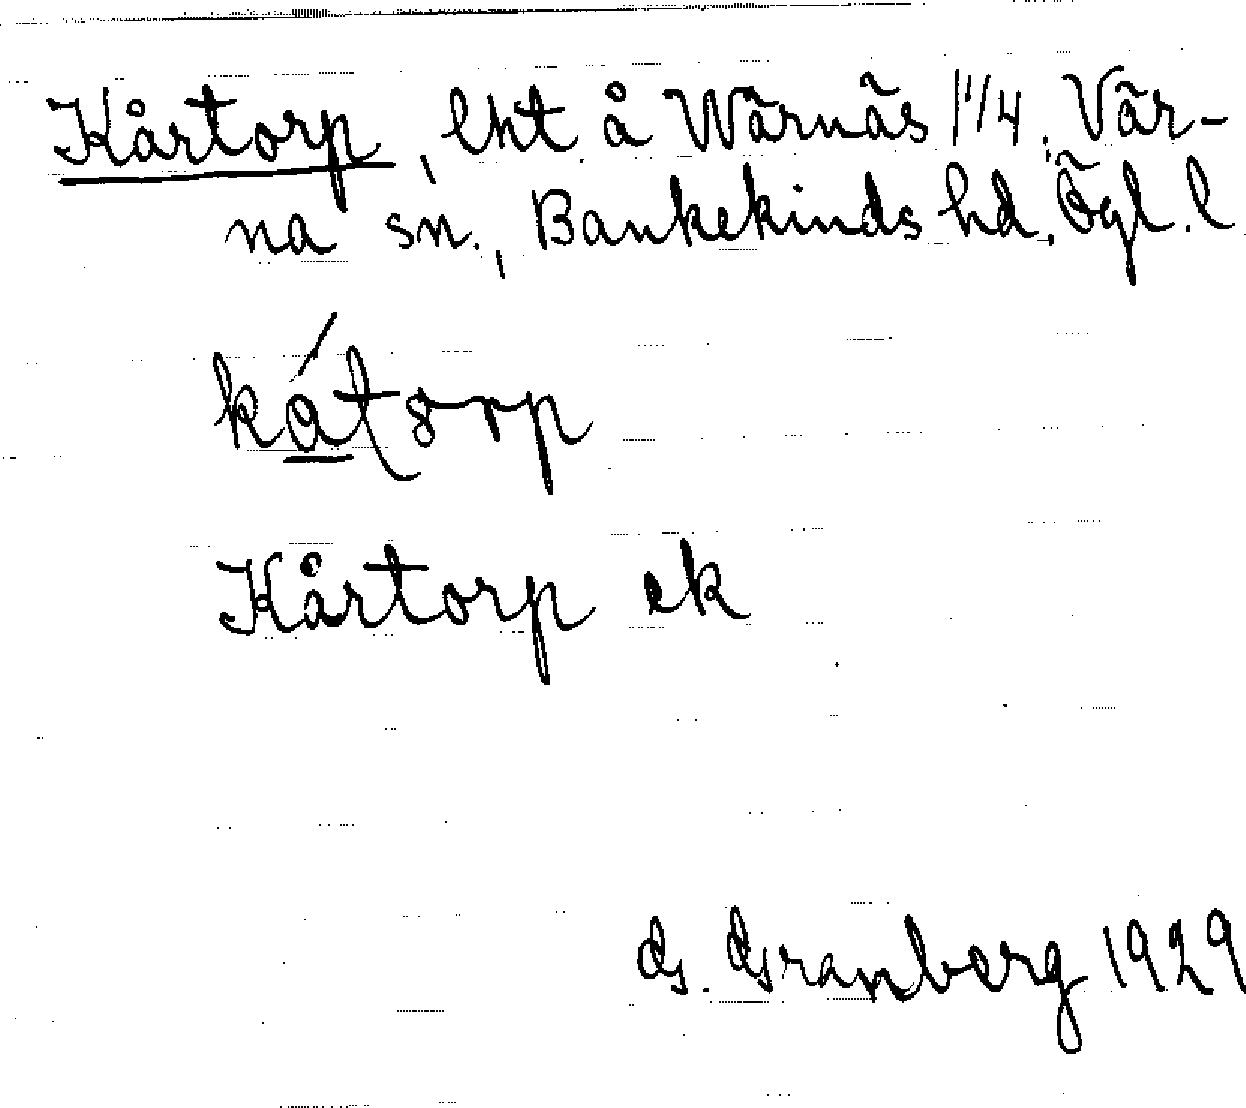 Kårtorp, lht. å Wärnäs 1 1/4. Vär-
na sn., Bankekinds hd, Ögl. l
kátorp
Kårtorp ek
G. Granberg 1929